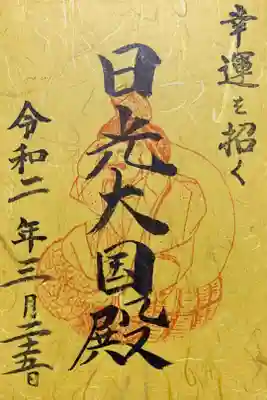 幸運を招く
日光大国殿
令和二年三月二十五日